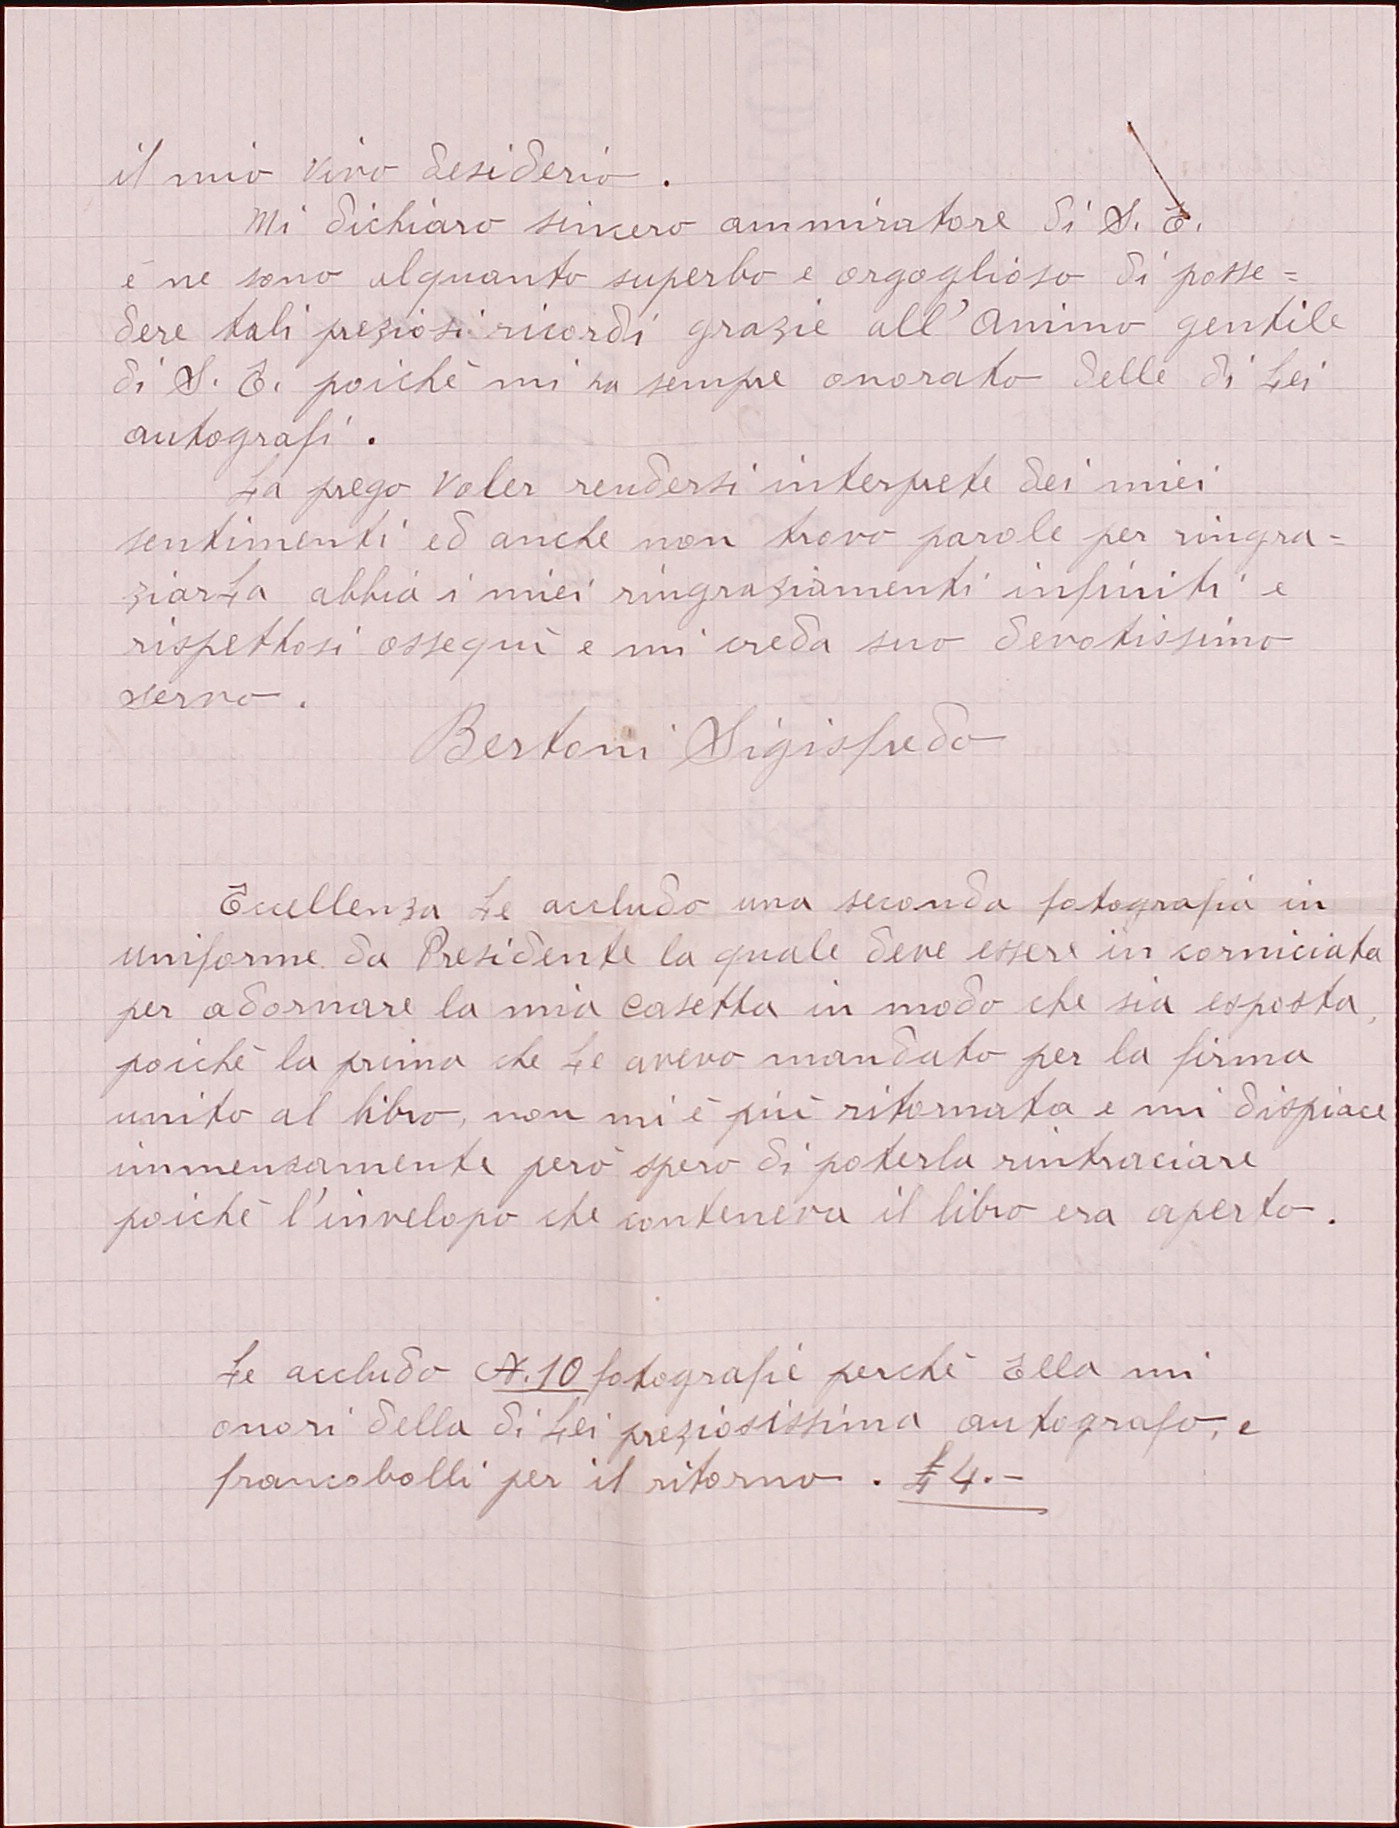 il mio vivo desiderio.
Mi dichiaro sincero ammiratore di S. E.
e ne sono alquanto superbo e orgoglioso di posse=
dere tali preziosi ricordi grazie all'Animo gentile
di S. E. poichè mi ha sempre onorato delle di Lei
autografi.
La prego voler rendersi interprete dei miei
sentimenti ed anche non trovo parole per ringra=
ziarLa abbia i miei ringraziamenti infiniti e
rispettosi ossequi e mi creda suo devotissimo
servo.
Bertoni Sigisfredo
Eccellenza Le accludo una seconda fotografia in
uniforme da Presidente la quale deve essere in corniciata
per adornare la mia casetta in modo che sia esposta,
poichè la prima che Le avevo mandato per la firma
unito al libro, non mi è più ritornata e mi dispiace
immensamente però spero di poterla rintraciare
poichè l'invelopo che conteneva il libro era aperto.
Le accludo N. 10 fotografie perchè Ella mi
onori della di Lei preziosissima autografo, e
francobolli per il ritorno. £ 4.-